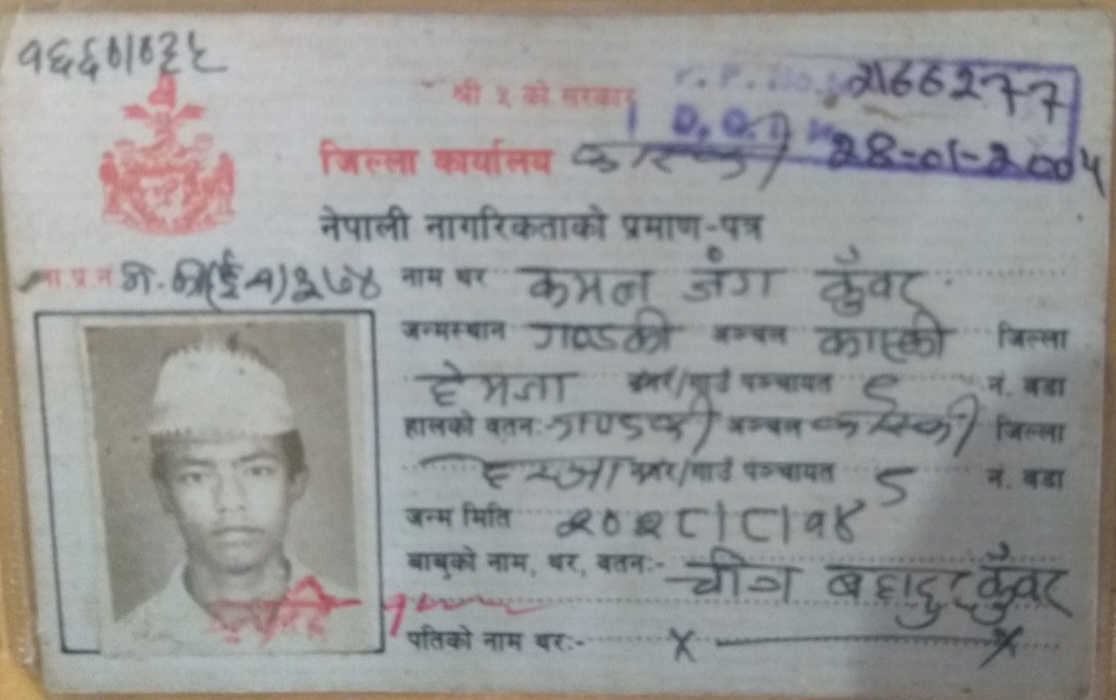 १६६०।०३५
श्री ५ को सरकार
P. P. No. 2166277
जिल्ला कार्यालय कास्की D. O. I 28-01-2004
नेपाली नागरिकताको प्रमाण-पत्र
ना.प्र.न
नाम थर कमल जंग कुँवर
जन्मस्थान गण्डकी अञ्चल कास्की जिल्ला
हेमजा नगर/गाउँ पञ्चायत ८ नं. वडा
हालको वतन:- गण्डकी अञ्चल कास्की जिल्ला
हेम्जा नगर/गाउँ पञ्चायत ८ नं. वडा
जन्म मिति २०२८।८।१४
बाबुको नाम, थर, वतन:- बहादुर कुँवर
पतिको नाम थर:- x x